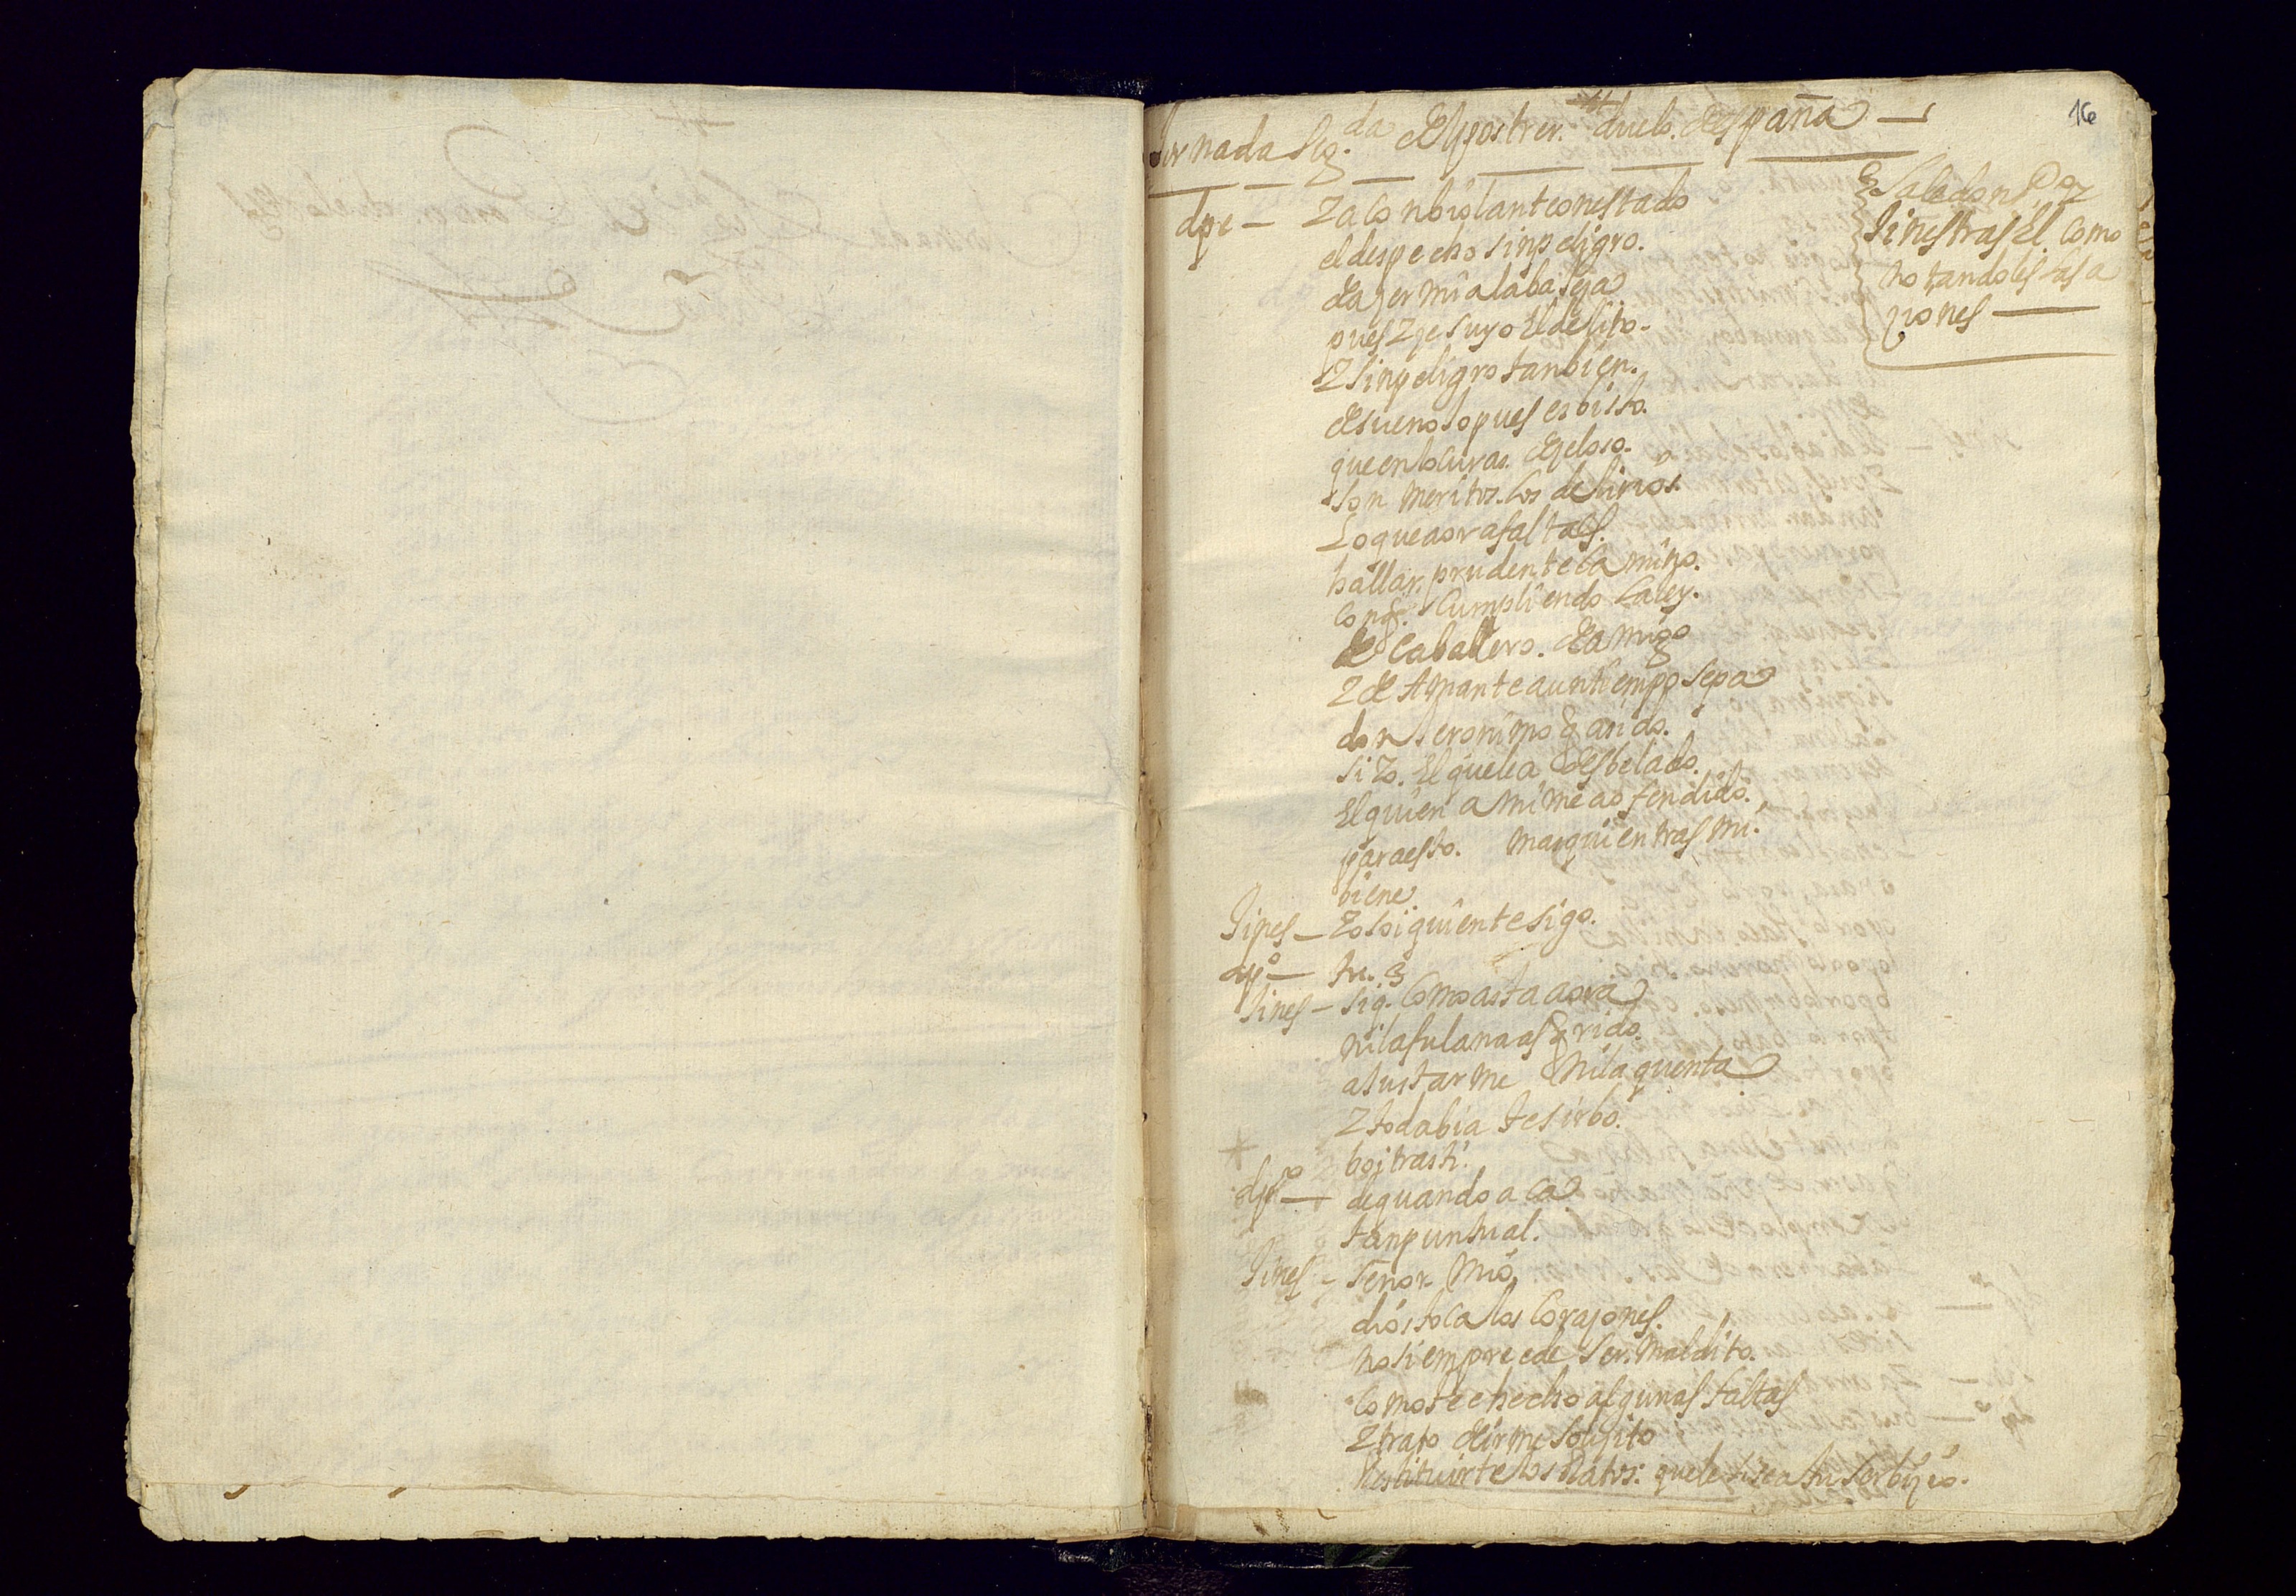 16
Jornada seg.da El postrer duelo de españa
Sale don P.o y
Jines tras El Como
notandoles las a
ziones
dpe — Ya Con biolante one stado
el despecho sin peligro.
de azer mi alabanza
pues Y qe suyo El delito.
Y sin peligro tanbien.
de su enoxo pues es bisto.
que en locuras. de zeloso.
son meritos. los delirios.
Lo que aora falta es.
hallar. prudente Camino.
Con q. Cumpliendo La ley.
de Caballero. de amigo
Y de Amante a un tiempo sepa
don Jeronimo q an ido.
si Yo. El que le a desbelado.
El quien a mi me a ofendido.
para esto. mas quien tras mi.
biene.
Jines — Yo soi quien te sigo.
dpº — tu.
Jines — si q. Como asta aora
ni las ulana as querido
asustarme ni la quenta
Y todabia te sirbo.
boi tras ti.
dpº — de quando a Ca
tan puntual.
Jines — señor mio
dios toCa los Corazones.
no sienpre e de ser. maldito.
Como te e hecho algunas faltas
Y trato de irme soliçito
Restituirte los Ratos. que le sise a tu serbizio.